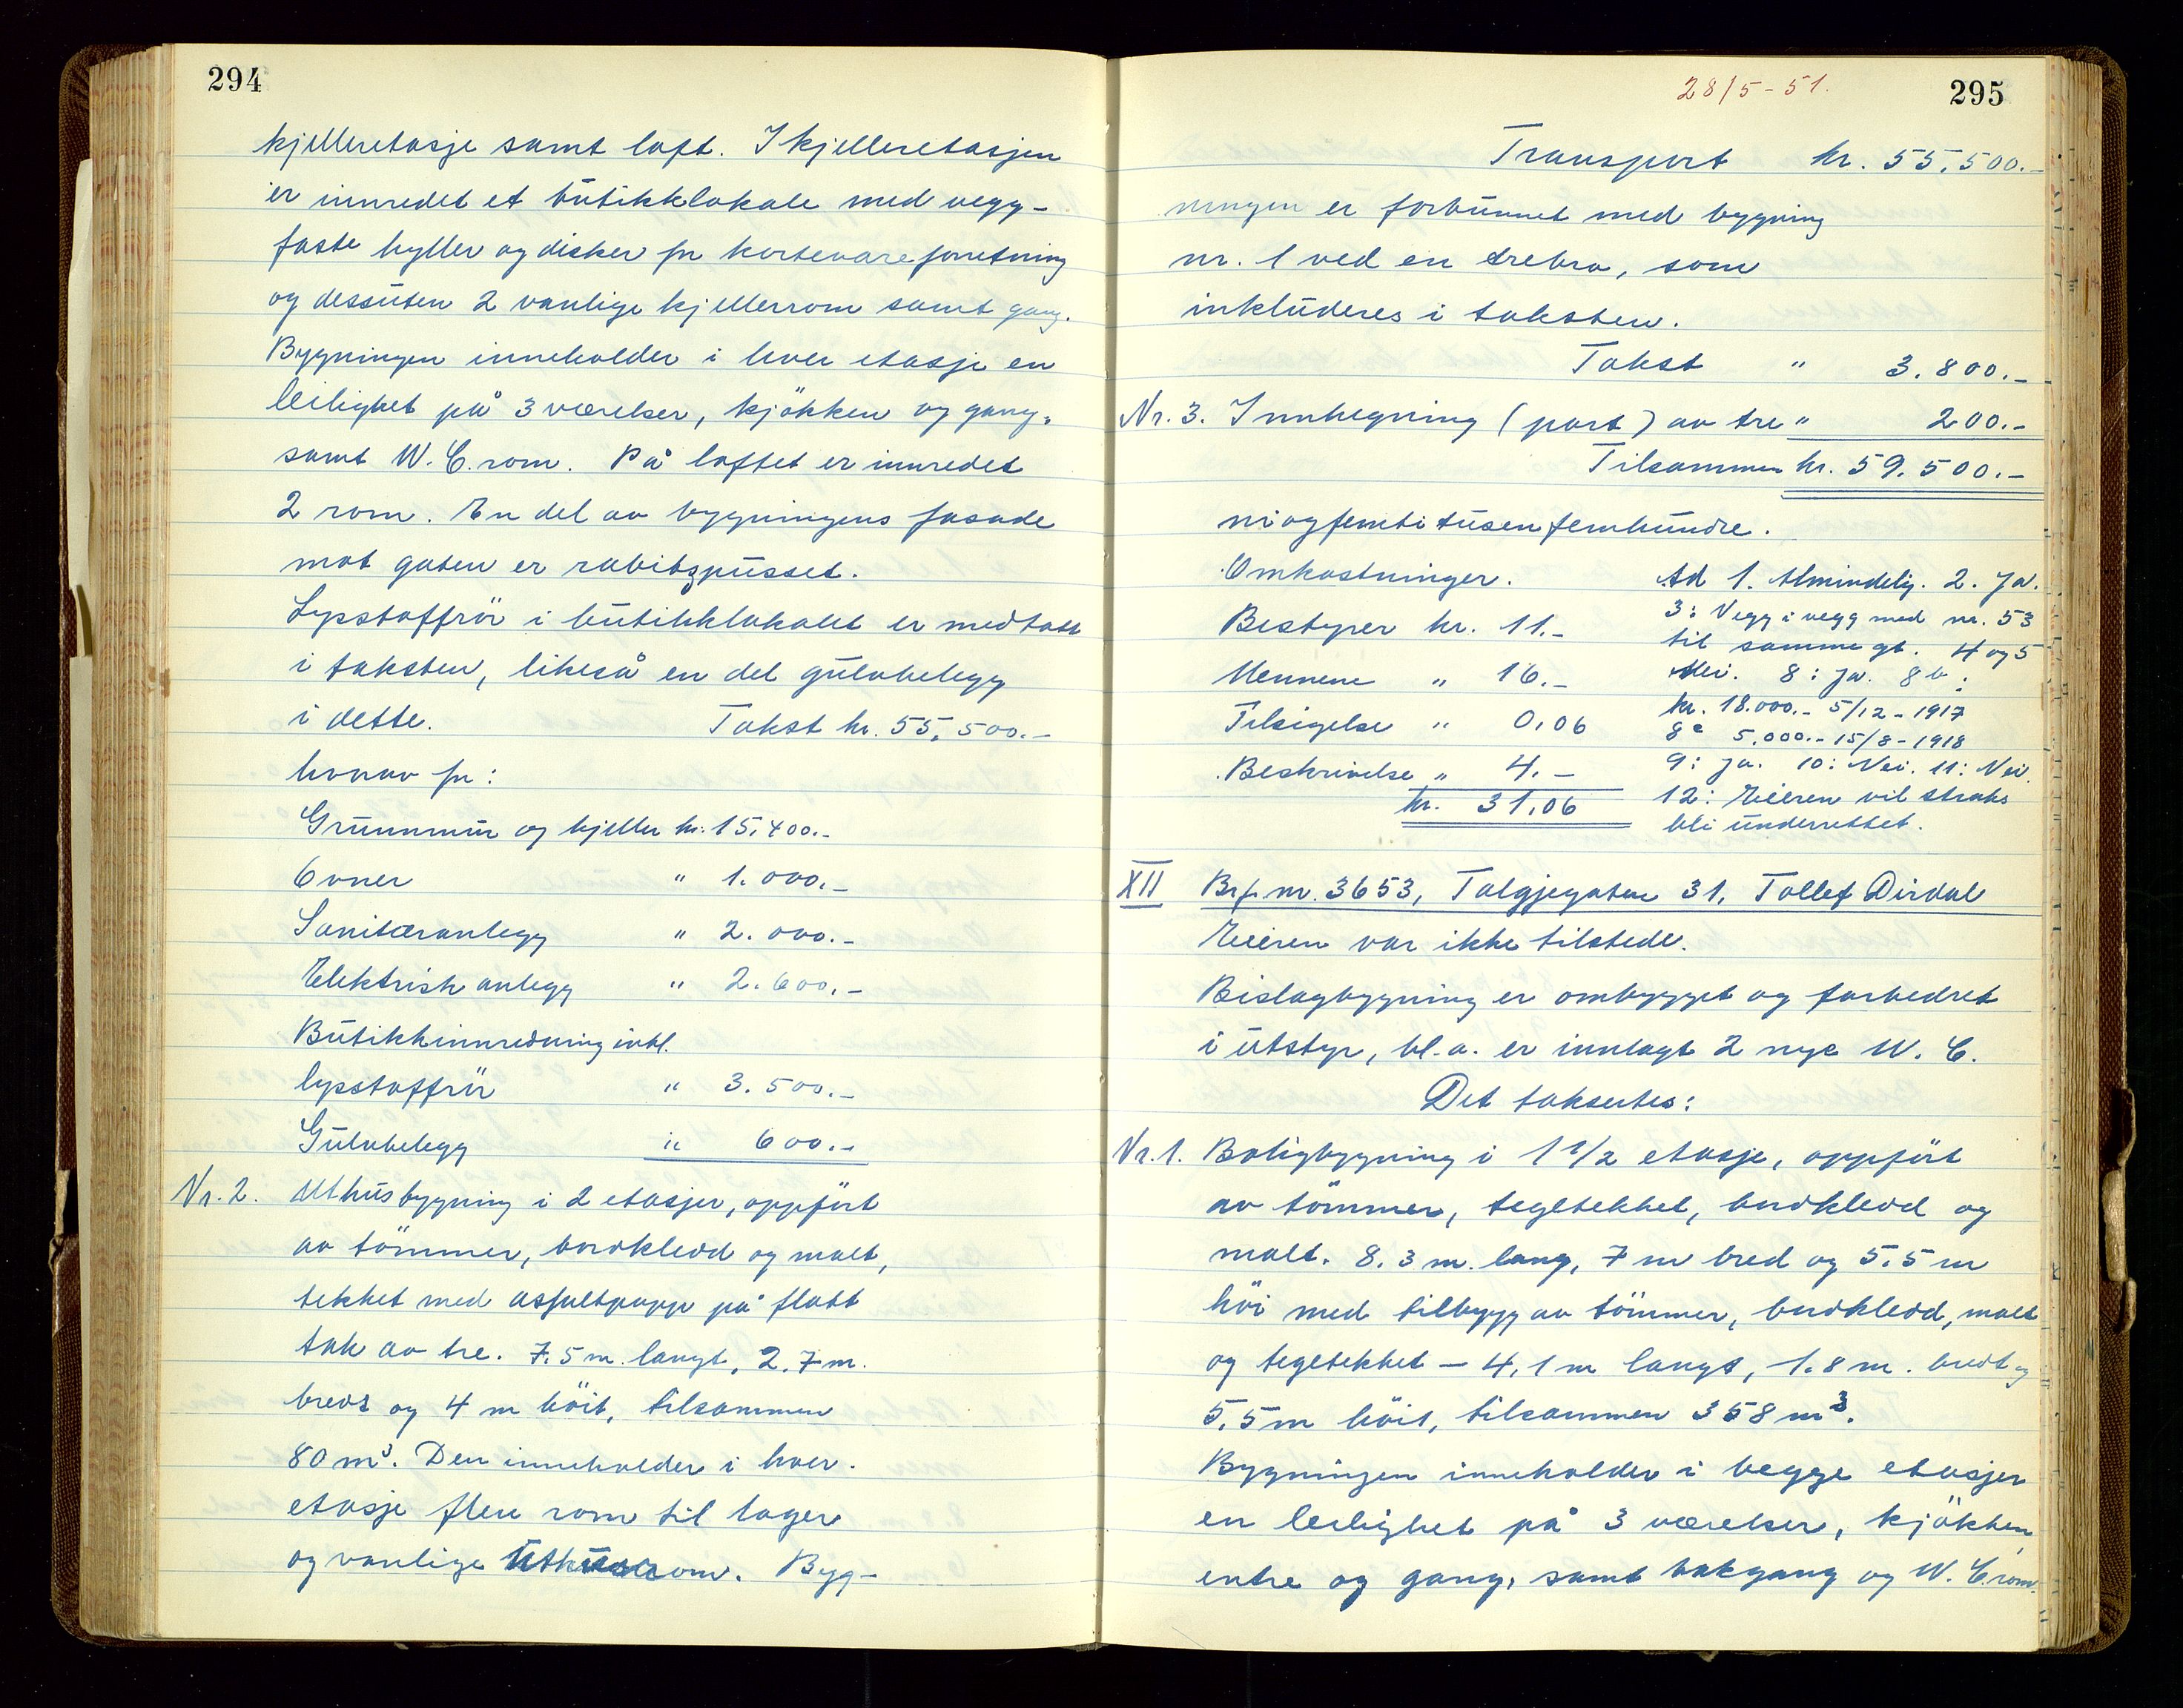 294
kjelleretasje samt loft. I kjelleretasjen
er innredet et butikklokale med vegg-
faste hyller og disker for kortevareforretning
og dessuten 2 vanlige kjellerrom samt gang.
Bygningen inneholder i hver etasje en
leilighet på 3 værelser, kjökken og gang,
samt W.C.rom. På loftet er innredet
2 rom. En del av bygningens fasade
mot gaten er rabitzpusset.
Lysstoffrör i butikklokalet er medtatt
i taksten, likeså en del gulvbelegg
i dette. Takst kr. 55.500.-
hvorav for:
Grunnmur og kjeller kr. 15.400.-
Ovner " 1.000.-
Sanitæranlegg " 2.000.-
Elektrisk anlegg " 2.600.-
Butikkinnredning inkl.
lysstoffrör " 3.500.-
Gulvbelegg " 600.-
Nr. 2. Uthusbygning i 2 etasjer, oppfört
av tömmer, bordkledd og malt,
tekket med asfaltpapp på flatt
tak av tre. 7.5 m. langt, 2.7 m.
bredt og 4 m höit, tilsammen
80 m³. Den inneholder i hver
etasje flere rom til lager
og vanlige uthusrom. Byg-
28/5-51.
295
Transport kr. 55.500.-
ningen er forbunnet med bygning
nr. 1 ved en trebro, som
inkluderes i taksten.
Takst " 3.800.-
Nr. 3. Innhegning (port) av tre " 200.-
Tilsammen kr. 59.500.-
niogfemtitusenfemhundre.
Omkostninger.
Bestyrer kr. 11.-
Mennene " 16.-
Tilsigelse " 0,06
Beskrivelse " 4.-
kr. 31,06
Ad 1. Almindelig. 2. Ja.
3: Vegg i vegg med nr. 53
til samme gt. 4 og 5
Nei. 8: Ja. 8 b:
kr. 18.000.- 5/12-1917
8c 5.000.- 15/8-1918
9: Ja. 10: Nei. 11: Nei.
12: Eieren vil straks
bli underrettet.
XII Br.f.nr. 3653, Talgjegaten 31, Tollef Dirdal
Eieren var ikke tilstede.
Bislagbygning er ombygget og forbedret
i utstyr, bl.a. er innlagt 2 nye W.C.
Det taksertes:
Nr. 1. Boligbygning i 1 1/2 etasje, oppfört
av tömmer, tegltekket, bordkledd og
malt. 8.3 m. lang, 7 m bred og 5.5 m
höi med tilbygg av tömmer, bordkledd, malt
og tegltekket - 4,1 m langt, 1.8 m. bredt og
5,5m höit, tilsammen 358 m³.
Bygningen inneholder i begge etasjer
en leilighet på 3 værelser, kjökken,
entre og gang, samt bakgang og W.C.rom.